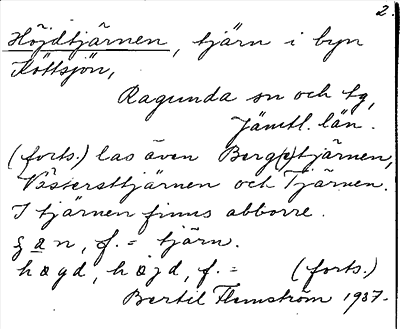 2.
Höjdtjärnen, tjärn i byn
Köttsjön,
Ragunda sn och tg,
Jämtl. län.
(forts.) las även Berg(s)tjärnen,
Västersttjärnen och Tjärnen.
I tjärnen finns abborre.
f. = tjärn.
hægd, f. = (forts.)
Bertil Flemström 1937.